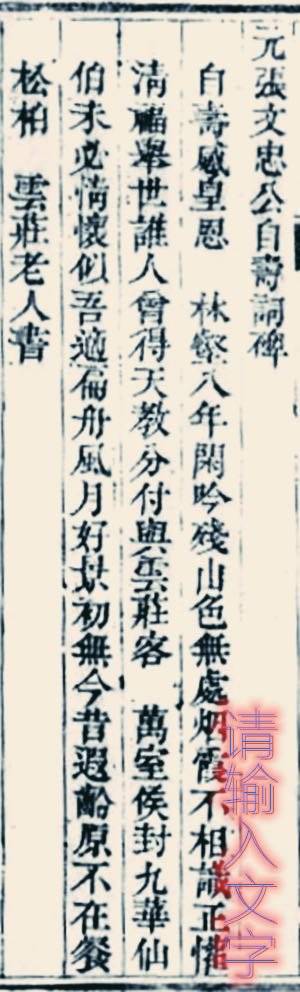 元張文忠公自壽詞碑
自壽感皇恩 林壑八年閑吟殘山色無處烟霞不相識正懽
清福舉世誰人曾得天教分付與雲莊客 萬室侯封九華仙
伯未必情懷似吾適偏舟風月好景初無今昔遐齡原不在餐
松柏 雲莊老人書
请输入文字